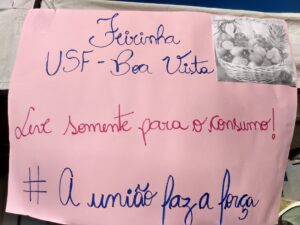 Feirinha
USF - Boa Vista
Leve somente para o consumo!
# A união faz a força